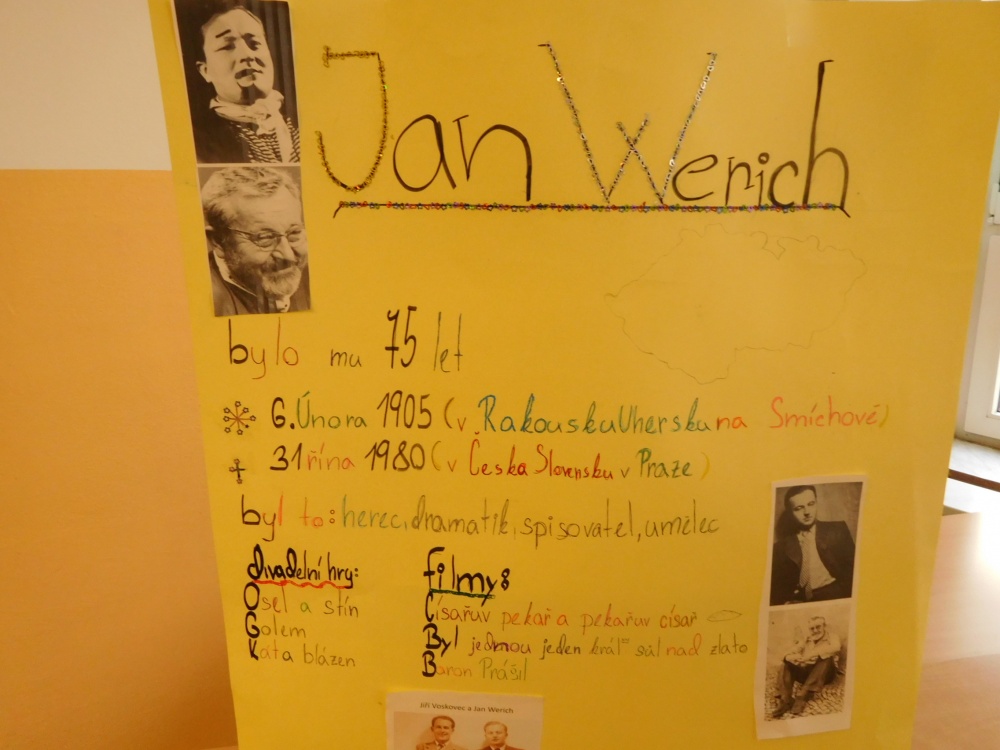 Jan Werich
bylo mu 75 let
6. Února 1905 (v Rakousku Uhersku na Smíchově)
31 října 1980 (v Česka Slovensku v Praze)
byl to: herec, dramatik, spisovatel, umělec
divadelní hry:
Osel a stín
Golem
Kata blázen
filmy:
Císařův pekař a pekařův císař
Byl jednou jeden král = sůl nad zlato
Baron Prášil
Jiří Voskovec a Jan Werich